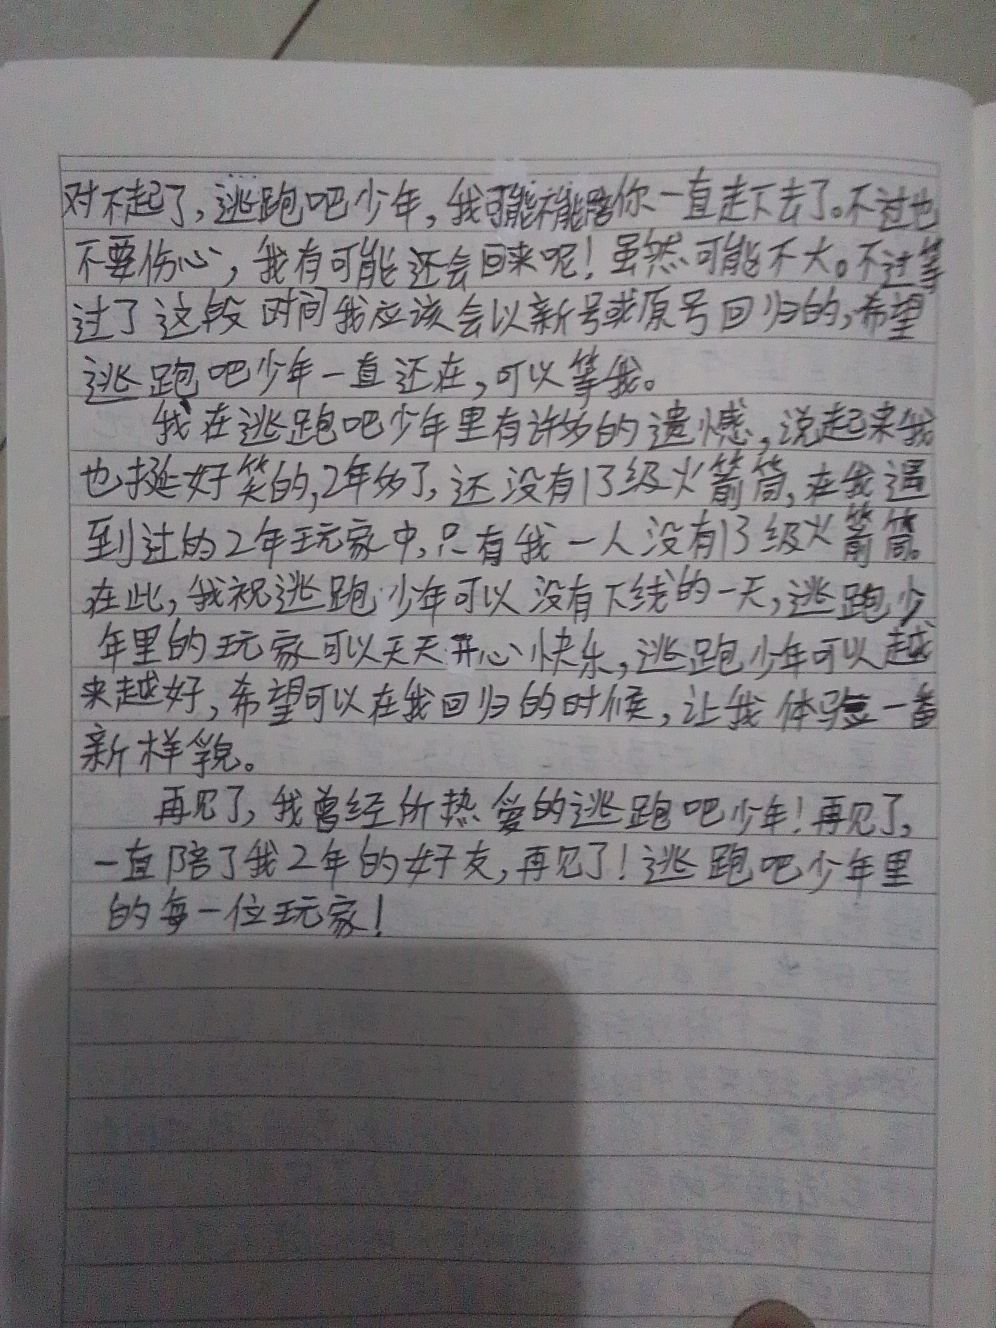 对不起了，逃跑吧少年，我可能不能陪你一直走下去了。不过也
不要伤心，我有可能还会回来呢！虽然可能不大。不过等
过了这段时间我应该会以新号或原号回归的，希望
逃跑吧少年一直还在，可以等我。
我在逃跑吧少年里有许多的遗憾，说起来我
也挺好笑的，2年多了，还没有13级火箭筒，在我遇
到过的2年玩家中，只有我一人没有13级火箭筒。
在此，我祝逃跑少年可以没有下线的一天，逃跑少
年里的玩家可以天天开心快乐，逃跑少年可以越
来越好，希望可以在我回归的时候，让我体验一番
新样貌。
再见了，我曾经所热爱的逃跑吧少年！再见了，
一直陪了我2年的好友，再见了！逃跑吧少年里
的每一位玩家！